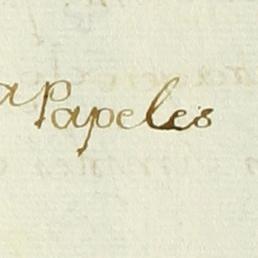 a Papeles